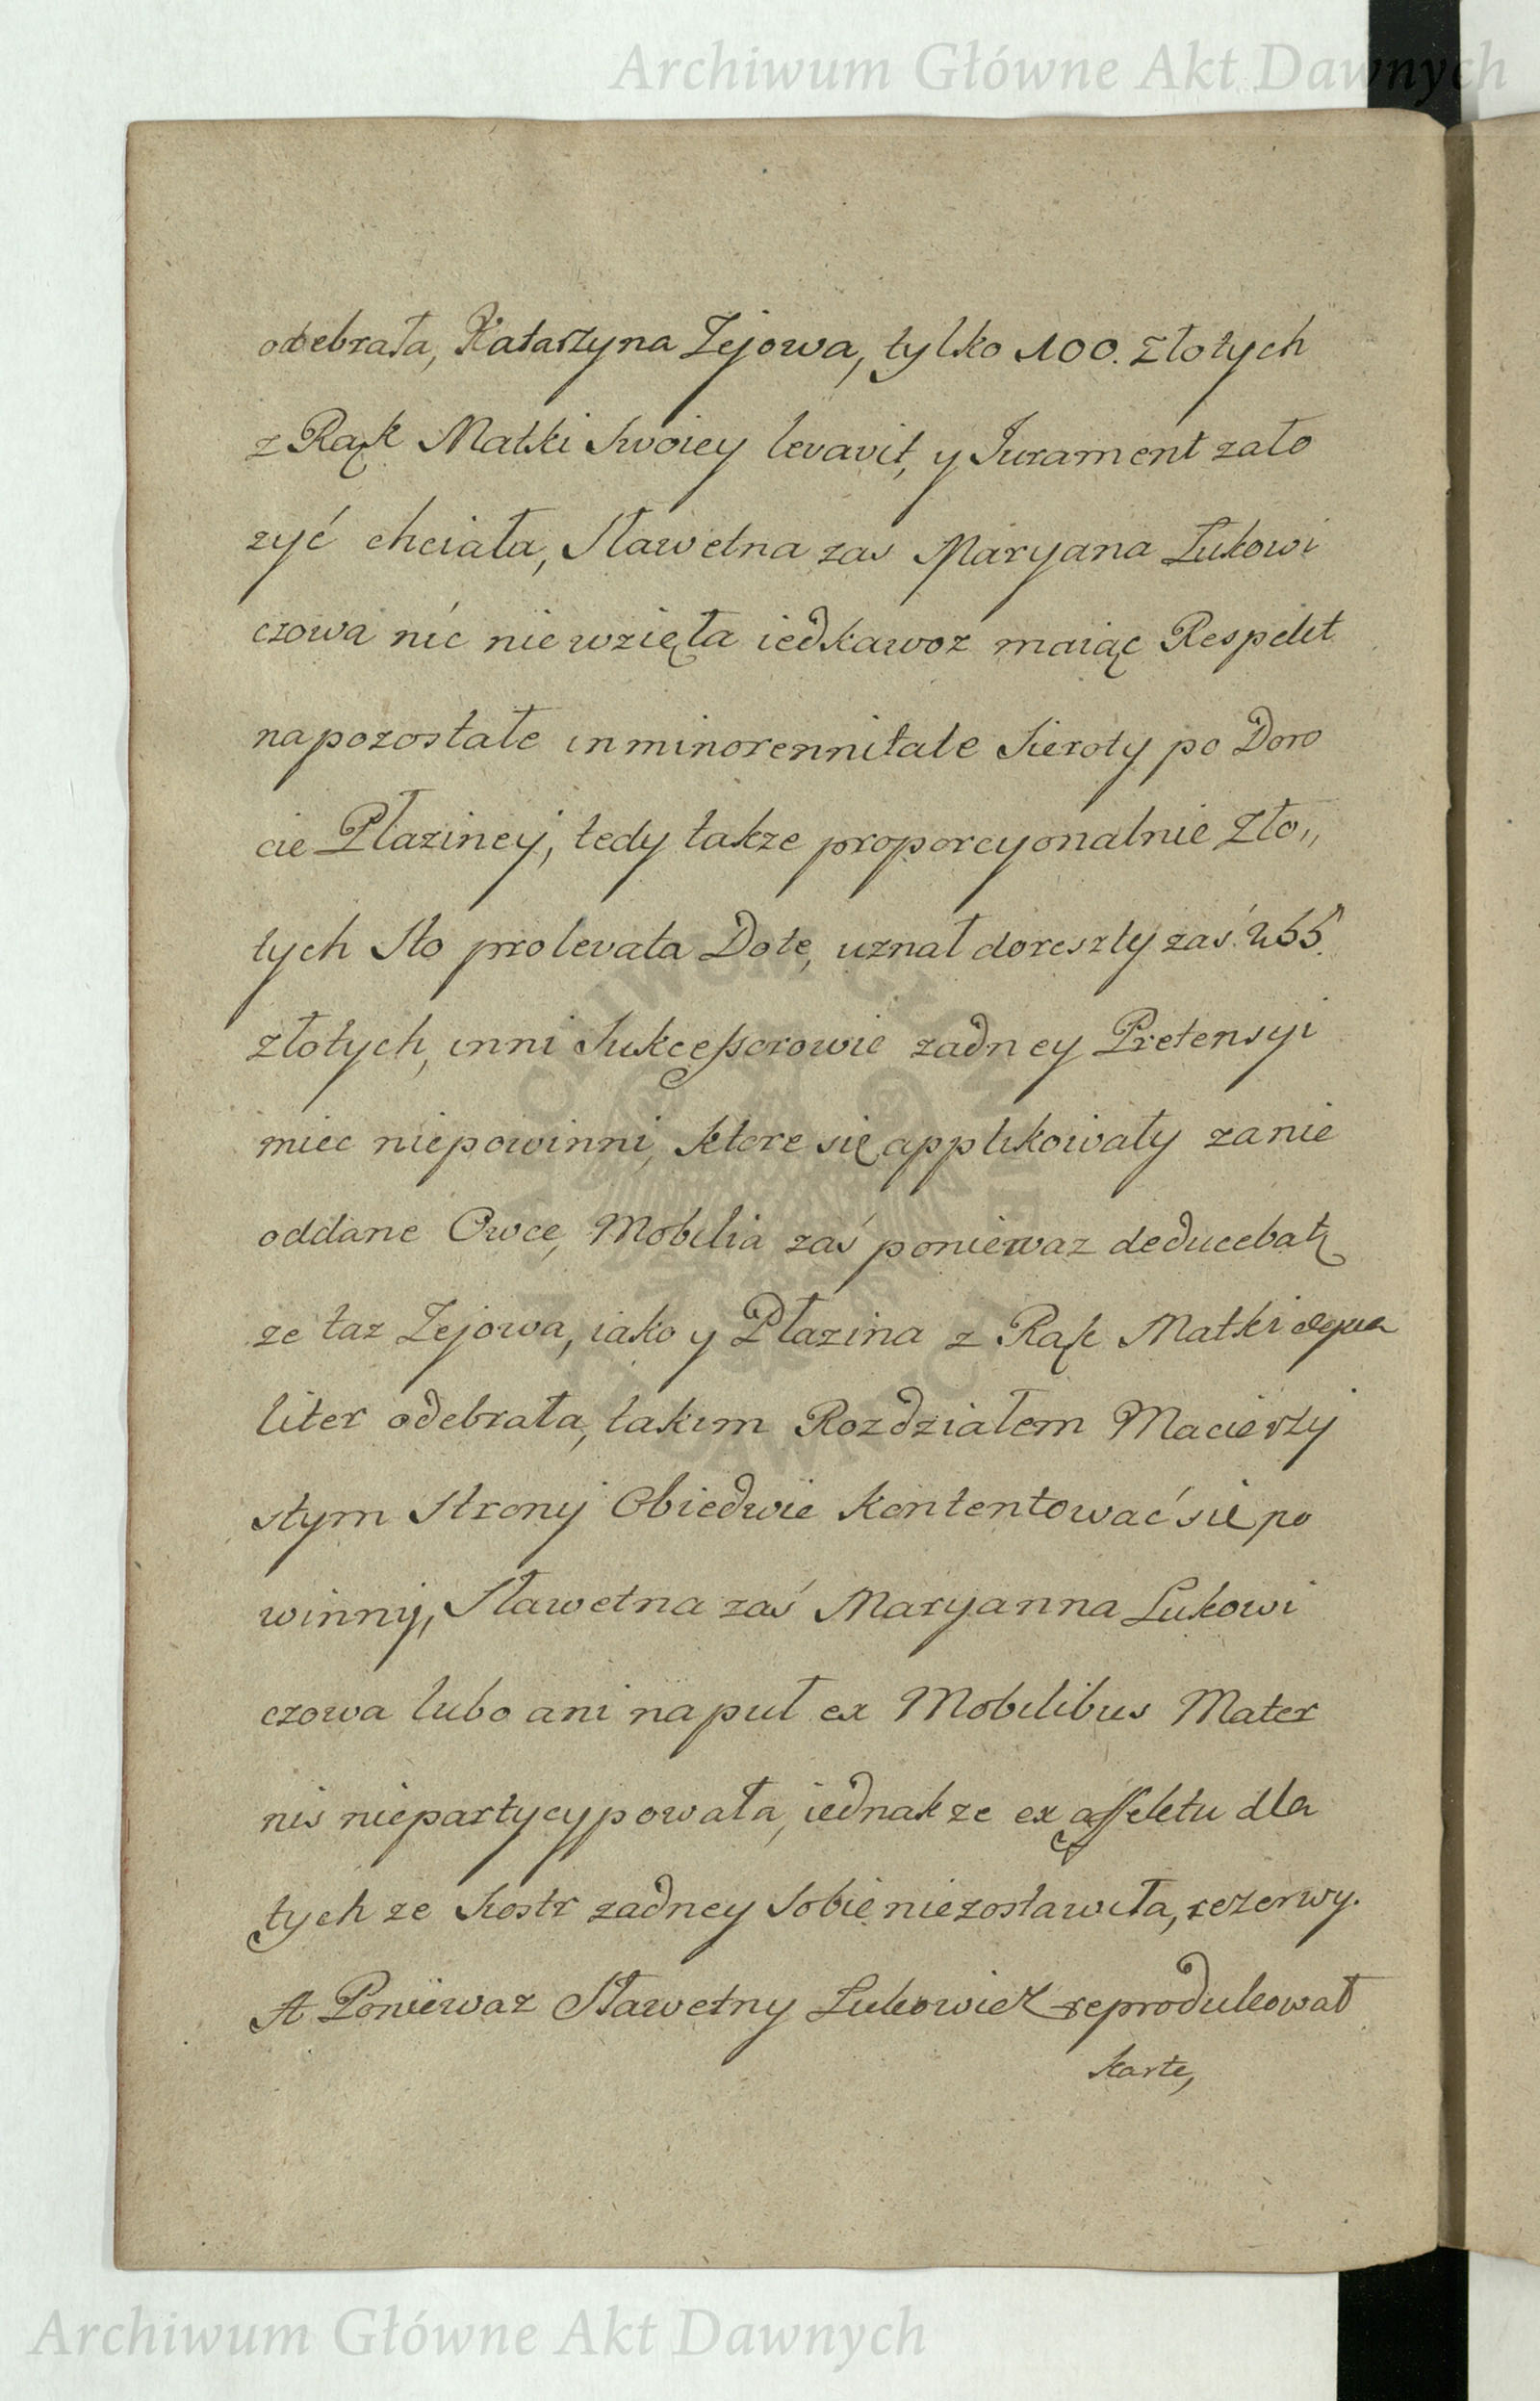 Archiwum Główne Akt Dawnych
odebrała, Katarzyna Zejowa, tylko 100. Złotych
z Rąk Matki Swoiey levavit, y Jurament zało
zyć chciała, Sławetna zas Maryana Lukowi
czowa nić nie wzięła iedkawoz maiąc Respekt
na pozostałe in minorennitate Sieroty po Doro
cie Płaziney, tedy takze proporcyonalnie Zło,,
tych Sto pro levata Dote, uznał do reszty zaś 255.
złotych, inni Sukceßorowie zadney Pretensyi
miec niepowinni, ktore się applikowały za nie
oddane Owce, Mobilia zaś poniewaz deducebat
ze taz Zejowa, iako y Płazina z Rąk Matki aequa
liter odebrała, takim Rozdziałem Macierzy
stym Strony Obiedwie kontentować sie po
winny, Sławetna zaś Maryanna Lukowi
czowa lubo ani na puł ex Mobilibus Mater
nis niepartycypowała, iednakze ex affektu dla
tych ze Siostr zadney Sobie niezostawiła, rezerwy.
A Poniewaz Sławetny Lukowicz reprodukował
karte,
Archiwum Główne Akt Dawnych